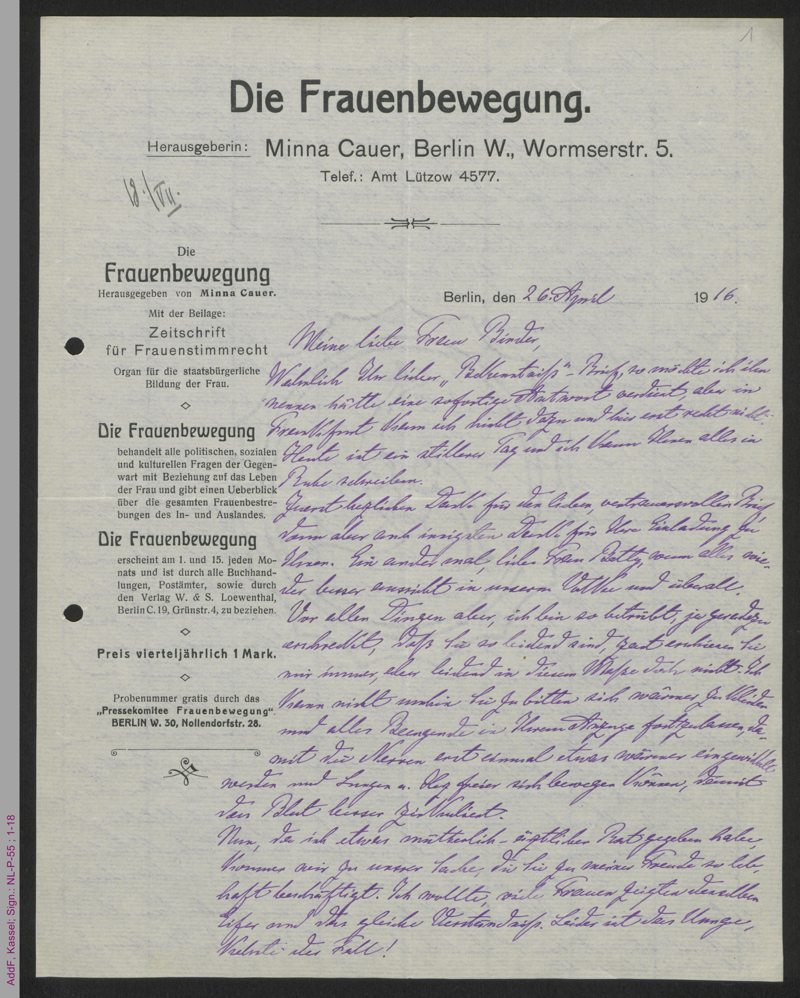 1
Die Frauenbewegung.
Herausgeberin: Minna Cauer, Berlin W., Wormserstr. 5.
Telef.: Amt Lützow 4577.
18./VII.
Die
Frauenbewegung
Herausgegeben von Minna Cauer.
Mit der Beilage:
Zeitschrift
für Frauenstimmrecht
Organ für die staatsbürgerliche
Bildung der Frau.
Die Frauenbewegung
behandelt alle politischen, sozialen
und kulturellen Fragen der Gegen-
wart mit Beziehung auf das Leben
der Frau und gibt einen Ueberblick
über die gesamten Frauenbestre-
bungen des In- und Auslandes.
Die Frauenbewegung
erscheint am 1. und 15. jeden Mo-
nats und ist durch alle Buchhand-
lungen, Postämter, sowie durch
den Verlag W. & S. Loewenthal,
Berlin C. 19, Grünstr. 4, zu beziehen.
Preis vierteljährlich 1 Mark.
Probenummer gratis durch das
„Pressekomitee Frauenbewegung"
BERLIN W. 30, Nollendorfstr. 28.
Berlin, den 26. April 1916.
Meine liebe Frau Binder,
Ihr lieber „Bekenntniß"-Brief, so möchte ich ihn
nennen hätte eine sofortige Antwort verdient, aber in
Frankfurt kam ich nicht dazu und hier erst recht nicht.
Heute ist ein stillerer Tag und ich kann Ihnen alles in
Ruhe schreiben.
Zuerst herzlichen Dank für den lieben, vertrauensvollen Brief
dann aber auch innigsten Dank für Ihre Einladung zu
Ihnen. Ein ander mal, liebe Frau Betty, wenn alles wie-
der besser aussieht in unserm Volke und überall.
Vor allen Dingen aber, ich bin so betrübt, ja geradezu
erschreckt, daß Sie so leidend sind, zart erschienen Sie
mir immer, aber leidend in diesem Maße doch nicht. Ich
kann nicht umhin Sie zu bitten sich wärmer zu kleiden
und alles Beengende in Ihrem Anzuge fortzulassen, da-
mit die Nerven erst einmal etwas wärmer eingewickelt
werden und Lungen u. Herz freier sich bewegen können, damit
das Blut besser zirkuliert.
Nun, da ich etwas mütterlich-ärztlichen Rat gegeben habe,
kommen wir zu unsrer Sache, die Sie zu meiner Freude so leb-
haft beschäftigt. Ich wollte, viele Frauen zeigten denselben
Eifer und das gleiche Verständniß. Leider ist das Umge-
kehrte der Fall!
AddF, Kassel; Sign.: NL-P-55 ; 1-18